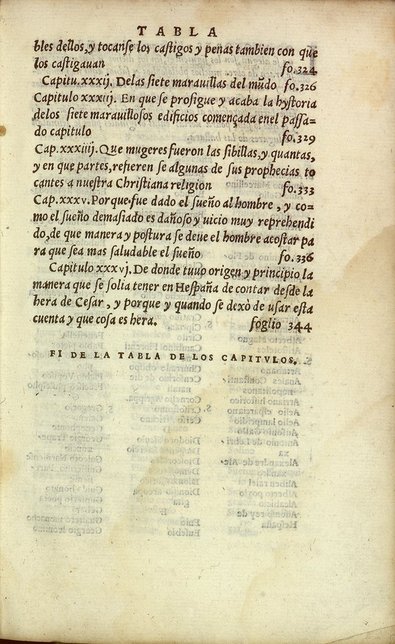 TABLA
bles dellos, y tocanse los castigos y penas tambien con que
los castigauan fo. 324
Capitu. xxxij. Delas siete marauillas del mūdo fo. 326
Capitulo xxxiij. En que se prosigue y acaba la hystoria
delos siete marauillosos edificios començada enel passa-
do capitulo fo. 329
Cap. xxxiiij. Que mugeres fueron las sibillas, y quantas,
y en que partes, refieren se algunas de sus prophecias to
cantes a nuestra Christiana religion fo. 333
Cap. xxxv. Porque fue dado el sueño al hombre, y co-
mo el sueño demasiado es dañoso y uicio muy reprehendi
do, de que manera y postura se deue el hombre acostar pa
ra que sea mas saludable el sueño fo. 336
Capitulo xxxvj. De donde tuuo origen y principio la
manera que se solia tener en Hespaña de contar desde la
hera de Cesar, y porque y quando se dexò de usar esta
cuenta y que cosa es hera. foglio 344
FI DE LA TABLA DE LOS CAPITVLOS.